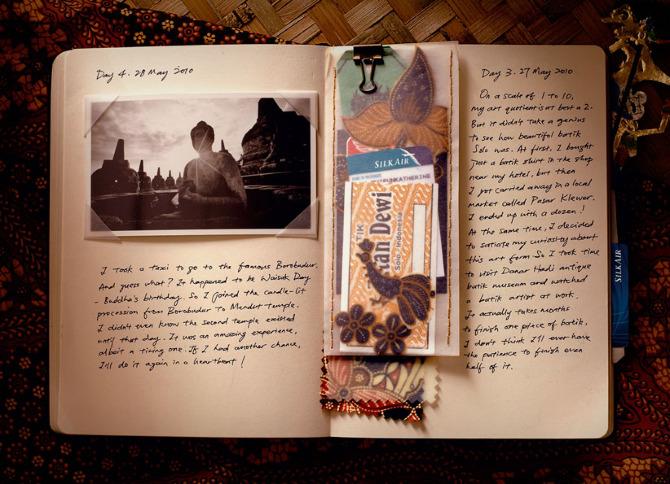 Day 4. 28 May 2010
I took a taxi to go to the famous Borobudur.
And guess what? It happened to be Waisak Day
- Buddha's birthday. So I joined the candle-lit
procession from Borobudur to Mendut temple.
I didn't even know the second temple existed
until that day. It was an amazing experience,
albeit a tiring one. If I had another chance,
I'll do it again in a heartbeat!
SILKAIR
TIK
an Dewi
Solo-Indonesia
Day 3. 27 May 2010
On a scale of 1 to 10,
my art quotient is at best a 2.
But it didn't take a genius
to see how beautiful batik
Solo was. At first, I bought
just a batik shirt in the shop
near my hotel, but then
I got carried away in a local
market called Pasar Klewer.
I ended up with a dozen!
At the same time, I decided
to satisfy my curiosity about
this art form. So I took time
to visit Danar Hadi antique
batik museum and watched
a batik artist at work.
It actually takes months
to finish one piece of batik.
I don't think I'll ever have
the patience to finish even
half of it.
SILKAIR